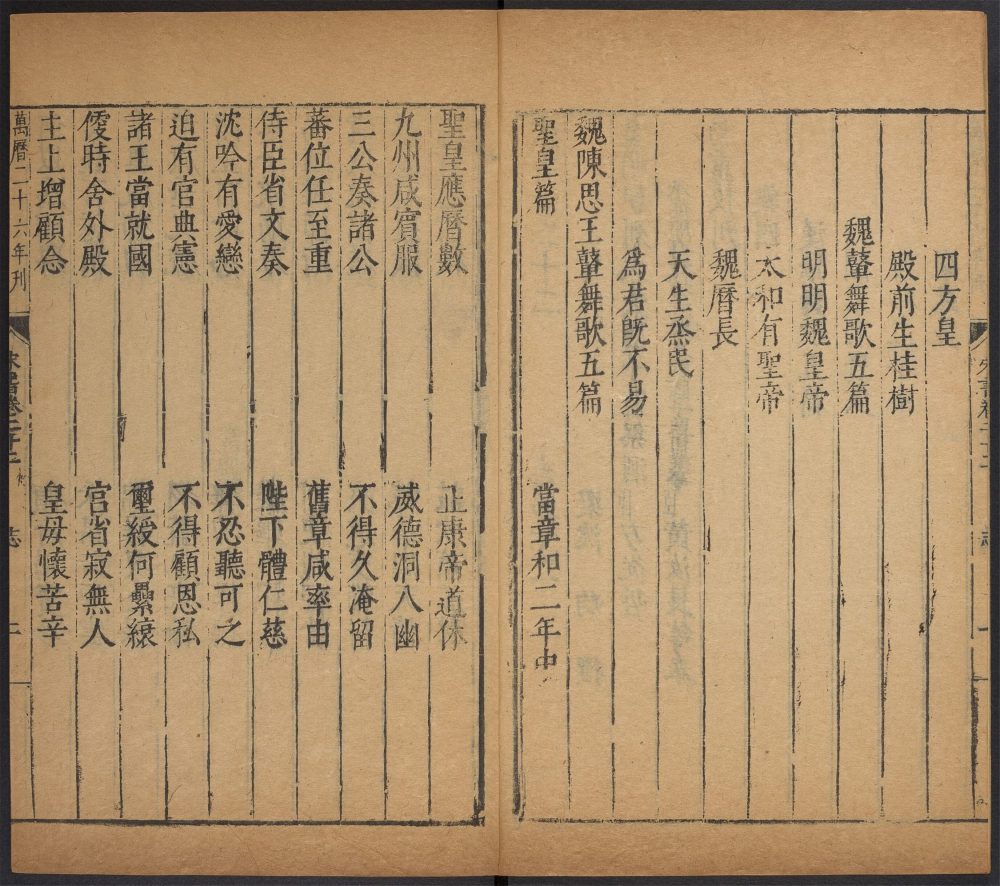 四方皇
殿前生桂樹
魏鼙舞歌五篇
明明魏皇帝
太和有聖帝
魏曆長
天生烝民
爲君旣不易
魏陳思王鼙舞歌五篇
聖皇篇　當章和二年中
聖皇應曆數　正康帝道休
九州咸賓服　威德洞八幽
三公奏諸公　不得久淹留
蕃位任至重　舊章咸率由
侍臣省文奏　陛下體仁慈
沈吟有愛戀　不忍聽可之
迫有官典憲　不得顧恩私
諸王當就國　璽綬何纍縗
便時舍外殿　宫省寂無人
主上增顧念　皇毋懷苦辛
萬曆二十六年刊　宋書卷二十二　志　二